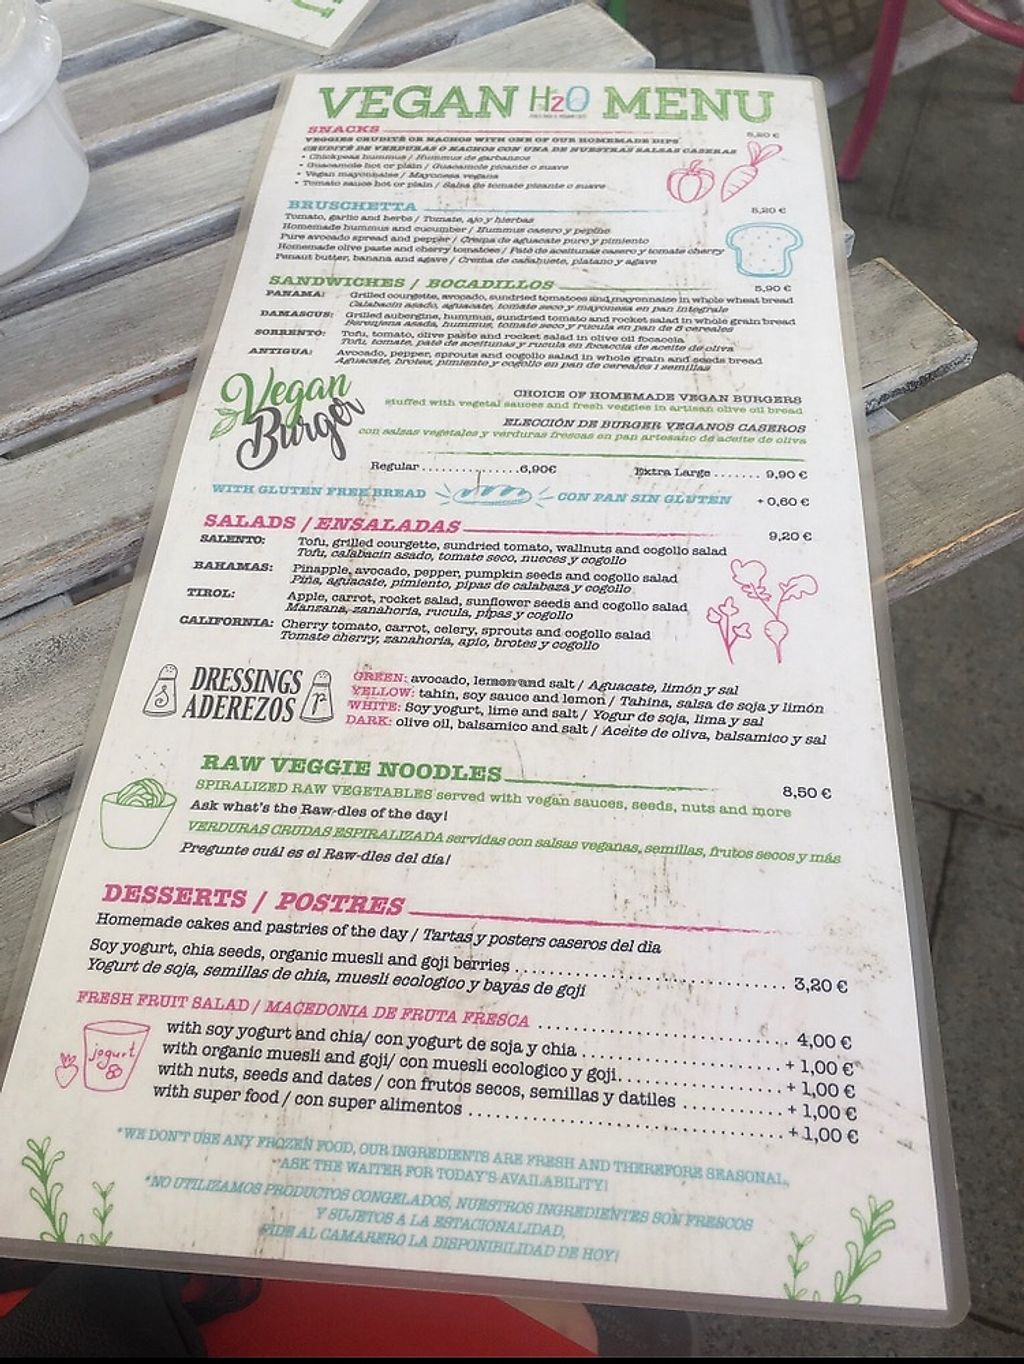 VEGAN H2O MENU
SNACKS 5,20 €
VEGGIES CRUDITÉ OR NACHOS WITH ONE OF OUR HOMEMADE DIPS
CRUDITÉ DE VERDURAS O NACHOS CON UNA DE NUESTRAS SALSAS CASERAS
• Chickpeas hummus / Hummus de garbanzos
• Guacamole hot or plain / Guacamole picante o suave
• Vegan mayonnaise / Mayonesa vegana
• Tomato sauce hot or plain / Salsa de tomate picante o suave
BRUSCHETTA 5,20 €
Tomato, garlic and herbs / Tomate, ajo y hierbas
Homemade hummus and cucumber / Hummus casero y pepino
Pure avocado spread and pepper / Crema de aguacate puro y pimiento
Homemade olive paste and cherry tomatoes / Paté de aceitunas casero y tomate cherry
Penaut butter, banana and agave / Crema de cañahuete, platano y agave
SANDWICHES / BOCADILLOS 5,90 €
PANAMA: Grilled courgette, avocado, sundried tomatoes and mayonnaise in whole wheat bread
Calabacin asado, aguacate, tomate seco y mayonesa en pan integrale
DAMASCUS: Grilled aubergine, hummus, sundried tomato and rocket salad in whole grain bread
Berenjena asada, hummus, tomate seco y rucula en pan de 5 cereales
SORRENTO: Tofu, tomato, olive paste and rocket salad in olive oil focaccia
Tofu, tomate, paté de aceitunas y rucula en focaccia de aceite de oliva
ANTIGUA: Avocado, pepper, sprouts and cogollo salad in whole grain and seeds bread
Aguacate, brotes, pimiento y cogollo en pan de cereales i semillas
Vegan Burger
CHOICE OF HOMEMADE VEGAN BURGERS
stuffed with vegetal sauces and fresh veggies in artisan olive oil bread
ELECCIÓN DE BURGER VEGANOS CASEROS
con salsas vegetales y verduras frescas en pan artesano de aceite de oliva
Regular....................6,90€ Extra Large....... 9,90 €
WITH GLUTEN FREE BREAD CON PAN SIN GLUTEN +0,60 €
SALADS / ENSALADAS 9,20 €
SALENTO: Tofu, grilled courgette, sundried tomato, wallnuts and cogollo salad
Tofu, calabacin asado, tomate seco, nueces y cogollo
BAHAMAS: Pinapple, avocado, pepper, pumpkin seeds and cogollo salad
Piña, aguacate, pimiento, pipas de calabaza y cogollo
TIROL: Apple, carrot, rocket salad, sunflower seeds and cogollo salad
Manzana, zanahoria, rucula, pipas y cogollo
CALIFORNIA: Cherry tomato, carrot, celery, sprouts and cogollo salad
Tomate cherry, zanahoria, apio, brotes y cogollo
S DRESSINGS P
ADEREZOS
GREEN: avocado, lemon and salt / Aguacate, limón y sal
YELLOW: tahin, soy sauce and lemon / Tahina, salsa de soja y limón
WHITE: Soy yogurt, lime and salt / Yogur de soja, lima y sal
DARK: olive oil, balsamico and salt / Aceite de oliva, balsamico y sal
RAW VEGGIE NOODLES 8,50 €
SPIRALIZED RAW VEGETABLES served with vegan sauces, seeds, nuts and more
Ask what's the Raw-dles of the day!
VERDURAS CRUDAS ESPIRALIZADA servidas con salsas veganas, semillas, frutos secos y más
Pregunte cuál es el Raw-dles del día!
DESSERTS / POSTRES
Homemade cakes and pastries of the day / Tartas y posters caseros del dia
Soy yogurt, chia seeds, organic muesli and goji berries .................................. 3,20 €
Yogurt de soja, semillas de chia, muesli ecologico y bayas de goji
FRESH FRUIT SALAD / MACEDONIA DE FRUTA FRESCA ............................... 4,00 €
with soy yogurt and chia/ con yogurt de soja y chia ......................... + 1,00 €
with organic muesli and goji/ con muesli ecologico y goji..................... + 1,00 €
with nuts, seeds and dates / con frutos secos, semillas y datiles ............ + 1,00 €
with super food / con super alimentos ........................................ +1,00 €
jogurt
*WE DON'T USE ANY FROZEN FOOD, OUR INGREDIENTS ARE FRESH AND THEREFORE SEASONAL,
ASK THE WAITER FOR TODAY'S AVAILABILITY!
*NO UTILIZAMOS PRODUCTOS CONGELADOS, NUESTROS INGREDIENTES SON FRESCOS
Y SUJETOS A LA ESTACIONALIDAD,
PIDE AL CAMARERO LA DISPONIBILIDAD DE HOY!